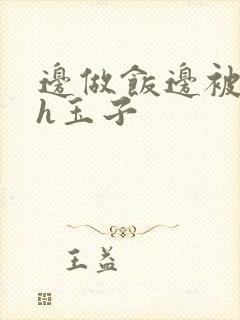 邊做飯邊被
h玉子
王益